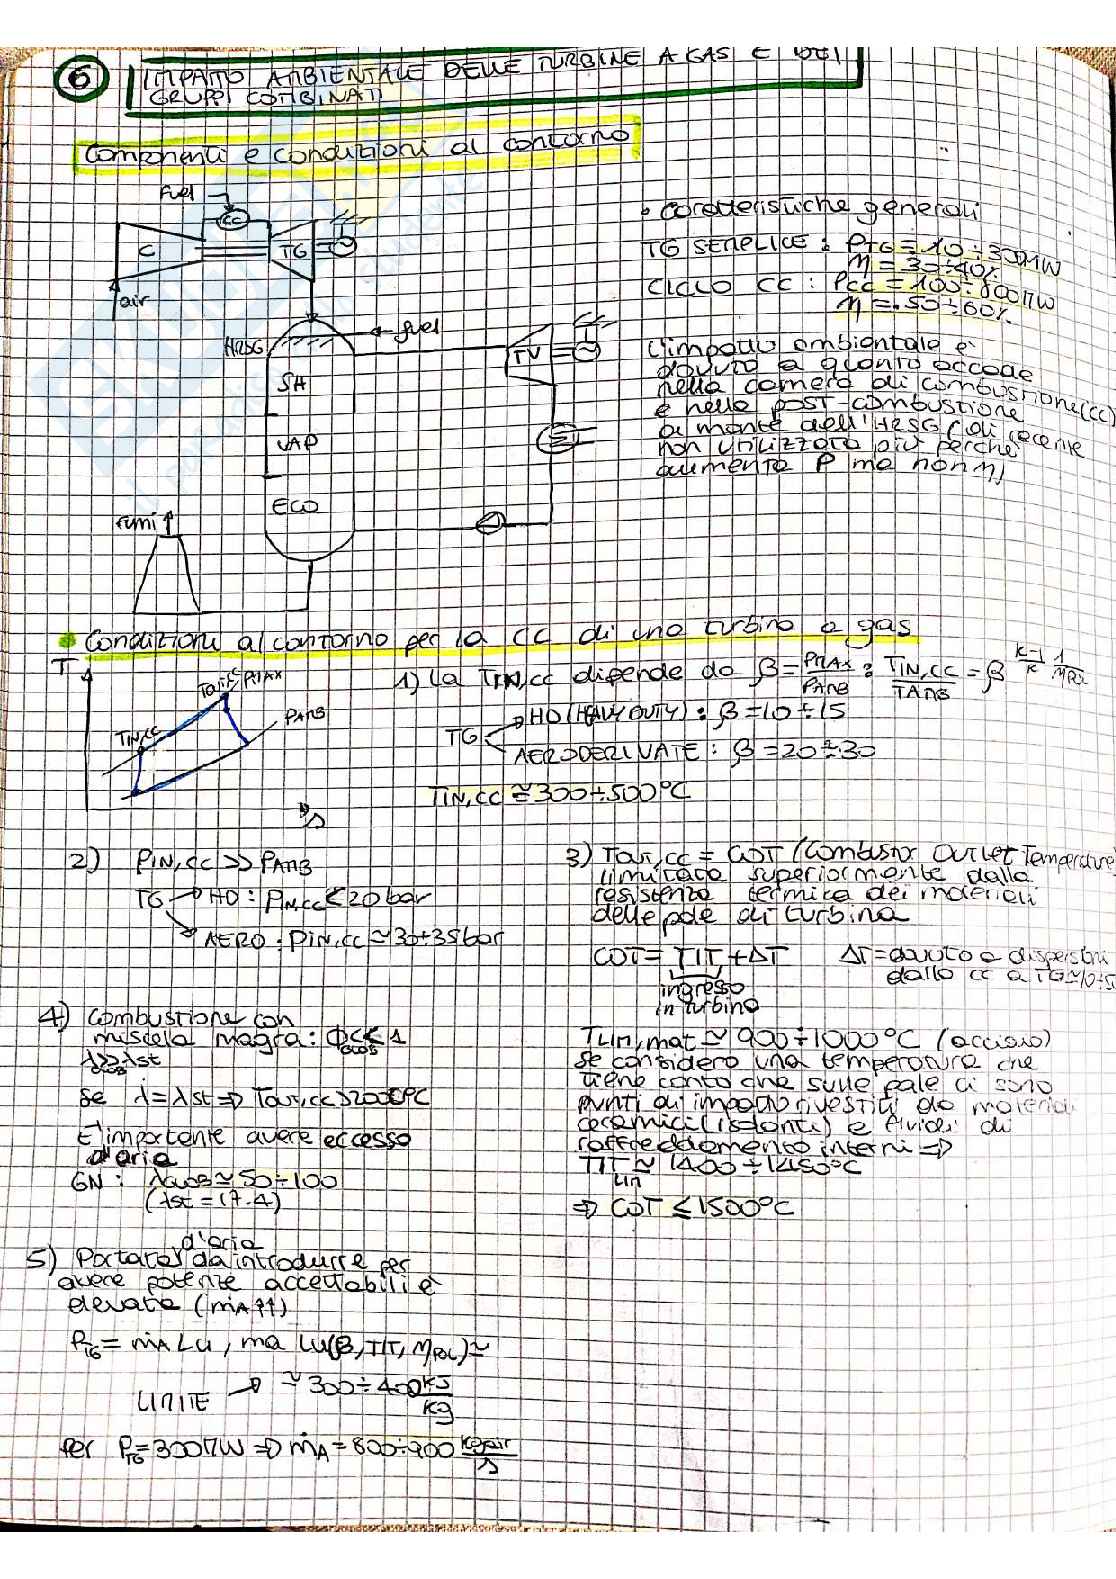 6
IMPATTO AMBIENTALE DELLE TURBINE A GAS E DEI
GRUPPI COMBINATI
Componenti e condizioni al contorno
fuel
CC
C
TG
air
HRSG
fuel
SH
VAP
ECO
TV
fumi
• caratteristiche generali
TG SEMPLICE : PTG = 10÷300MW
η = 30÷40%
CICLO CC : PCC = 100÷800MW
η = 50÷60%
L'impatto ambientale è
dovuto a quanto accade
nella camera di combustione (CC)
e nella POST-combustione
a monte dell'HRSG (di recente
non utilizzata più perché
aumenta P ma non η)
• Condizioni al contorno per la CC di una turbina a gas
T
Tout, PMAX
PAMB
TIN,CC
s
1) La TIN,CC dipende da β = PMAX/PAMB : TIN,CC/TAMB = β^(K-1/K · 1/ηPOL)
TG
HD (HEAVY DUTY) : β = 10÷15
AERODERIVATE : β = 20÷30
TIN,CC ≃ 300÷500°C
2) PIN,CC >> PAMB
TG → HD : PIN,CC < 20 bar
AERO : PIN,CC ≃ 30÷35 bar
3) Tout,CC = COT (Combustor Outlet Temperature)
limitata superiormente dalla
resistenza termica dei materiali
delle pale di turbina
COT = TIT + ΔT
ingresso
in turbina
ΔT = dovuto a dispersioni
dalla CC a TG
TLIM,mat ≃ 900÷1000°C (acciaio)
Se considero una temperatura che
tiene conto che sulle pale ci sono
punti di impatto rivestiti da materiali
ceramici (isolanti) e fluidi di
raffreddamento interni ⇒
TIT LIM ≃ 1400÷1450°C
⇒ COT ≤ 1500°C
4) Combustione con
miscela magra: ΦGLOB << 1
λGLOB >> λst
Se λ = λst ⇒ Tout,CC > 2000°C
E' importante avere eccesso
d'aria
GN : λGLOB ≃ 50÷100
(λst = 17.4)
5) Portata d'aria da introdurre per
avere potenze accettabili è
elevata (ṁA ↑↑)
PTG = ṁA Lu , ma Lu(β, TIT, ηPOL) ≃
LIMITE → ≃ 300÷400 kJ/kg
Per PTG = 300MW ⇒ ṁA = 800÷900 kg air/s